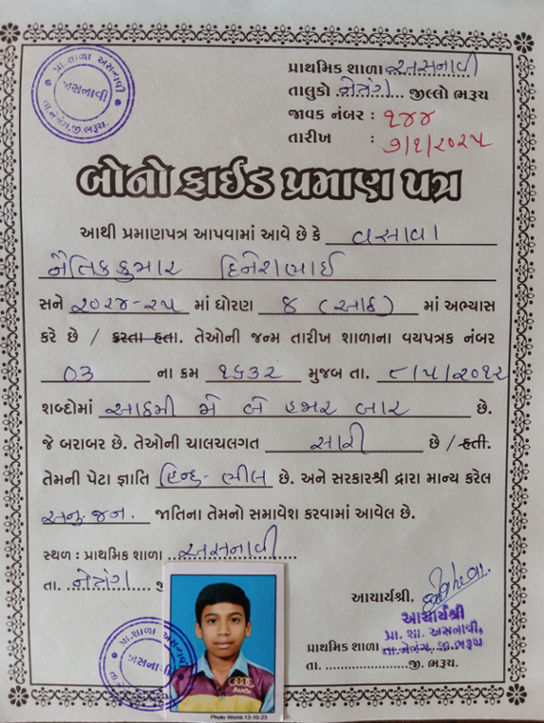 પ્રા.શાળા અસનાવી
અસનાવી
તા.નેત્રંગ.જી.ભરૂચ.
પ્રાથમિક શાળા અસનાવી
તાલુકો નેત્રંગ જીલ્લો ભરૂચ
જાવક નંબર : ૧૪૪
તારીખ : ૭/૧/૨૦૨૫
બોનોફાઈડ પ્રમાણ પત્ર
આથી પ્રમાણપત્ર આપવામાં આવે છે કે વસાવા
નૈતિકકુમાર દિનેશભાઈ
સને ૨૦૨૪-૨૫ માં ધોરણ ૮ (આઠ) માં અભ્યાસ
કરે છે / કરતા હતા. તેઓની જન્મ તારીખ શાળાના વયપત્રક નંબર
03 ના ક્રમ ૧૬૩૨ મુજબ તા. ૮/૫/૨૦૧૨
શબ્દોમાં આઠમી મે બે હજાર બાર છે.
જે બરાબર છે. તેઓની ચાલચલગત સારી છે / હતી.
તેમની પેટા જ્ઞાતિ હિન્દુ-ભીલ છે. અને સરકારશ્રી દ્વારા માન્ય કરેલ
અનુ.જન. જાતિના તેમનો સમાવેશ કરવામાં આવેલ છે.
સ્થળ : પ્રાથમિક શાળા અસનાવી
તા. નેત્રંગ
આચાર્યશ્રી,
આચાર્યશ્રી
પ્રા. શા. અસનાવી,
પ્રાથમિક શાળા તા.નેત્રંગ, જી.ભરૂચ
તા. જી. ભરૂચ.
પ્રા.શાળા અસનાવી
અસનાવી
Audi
Photo World-13-10-23